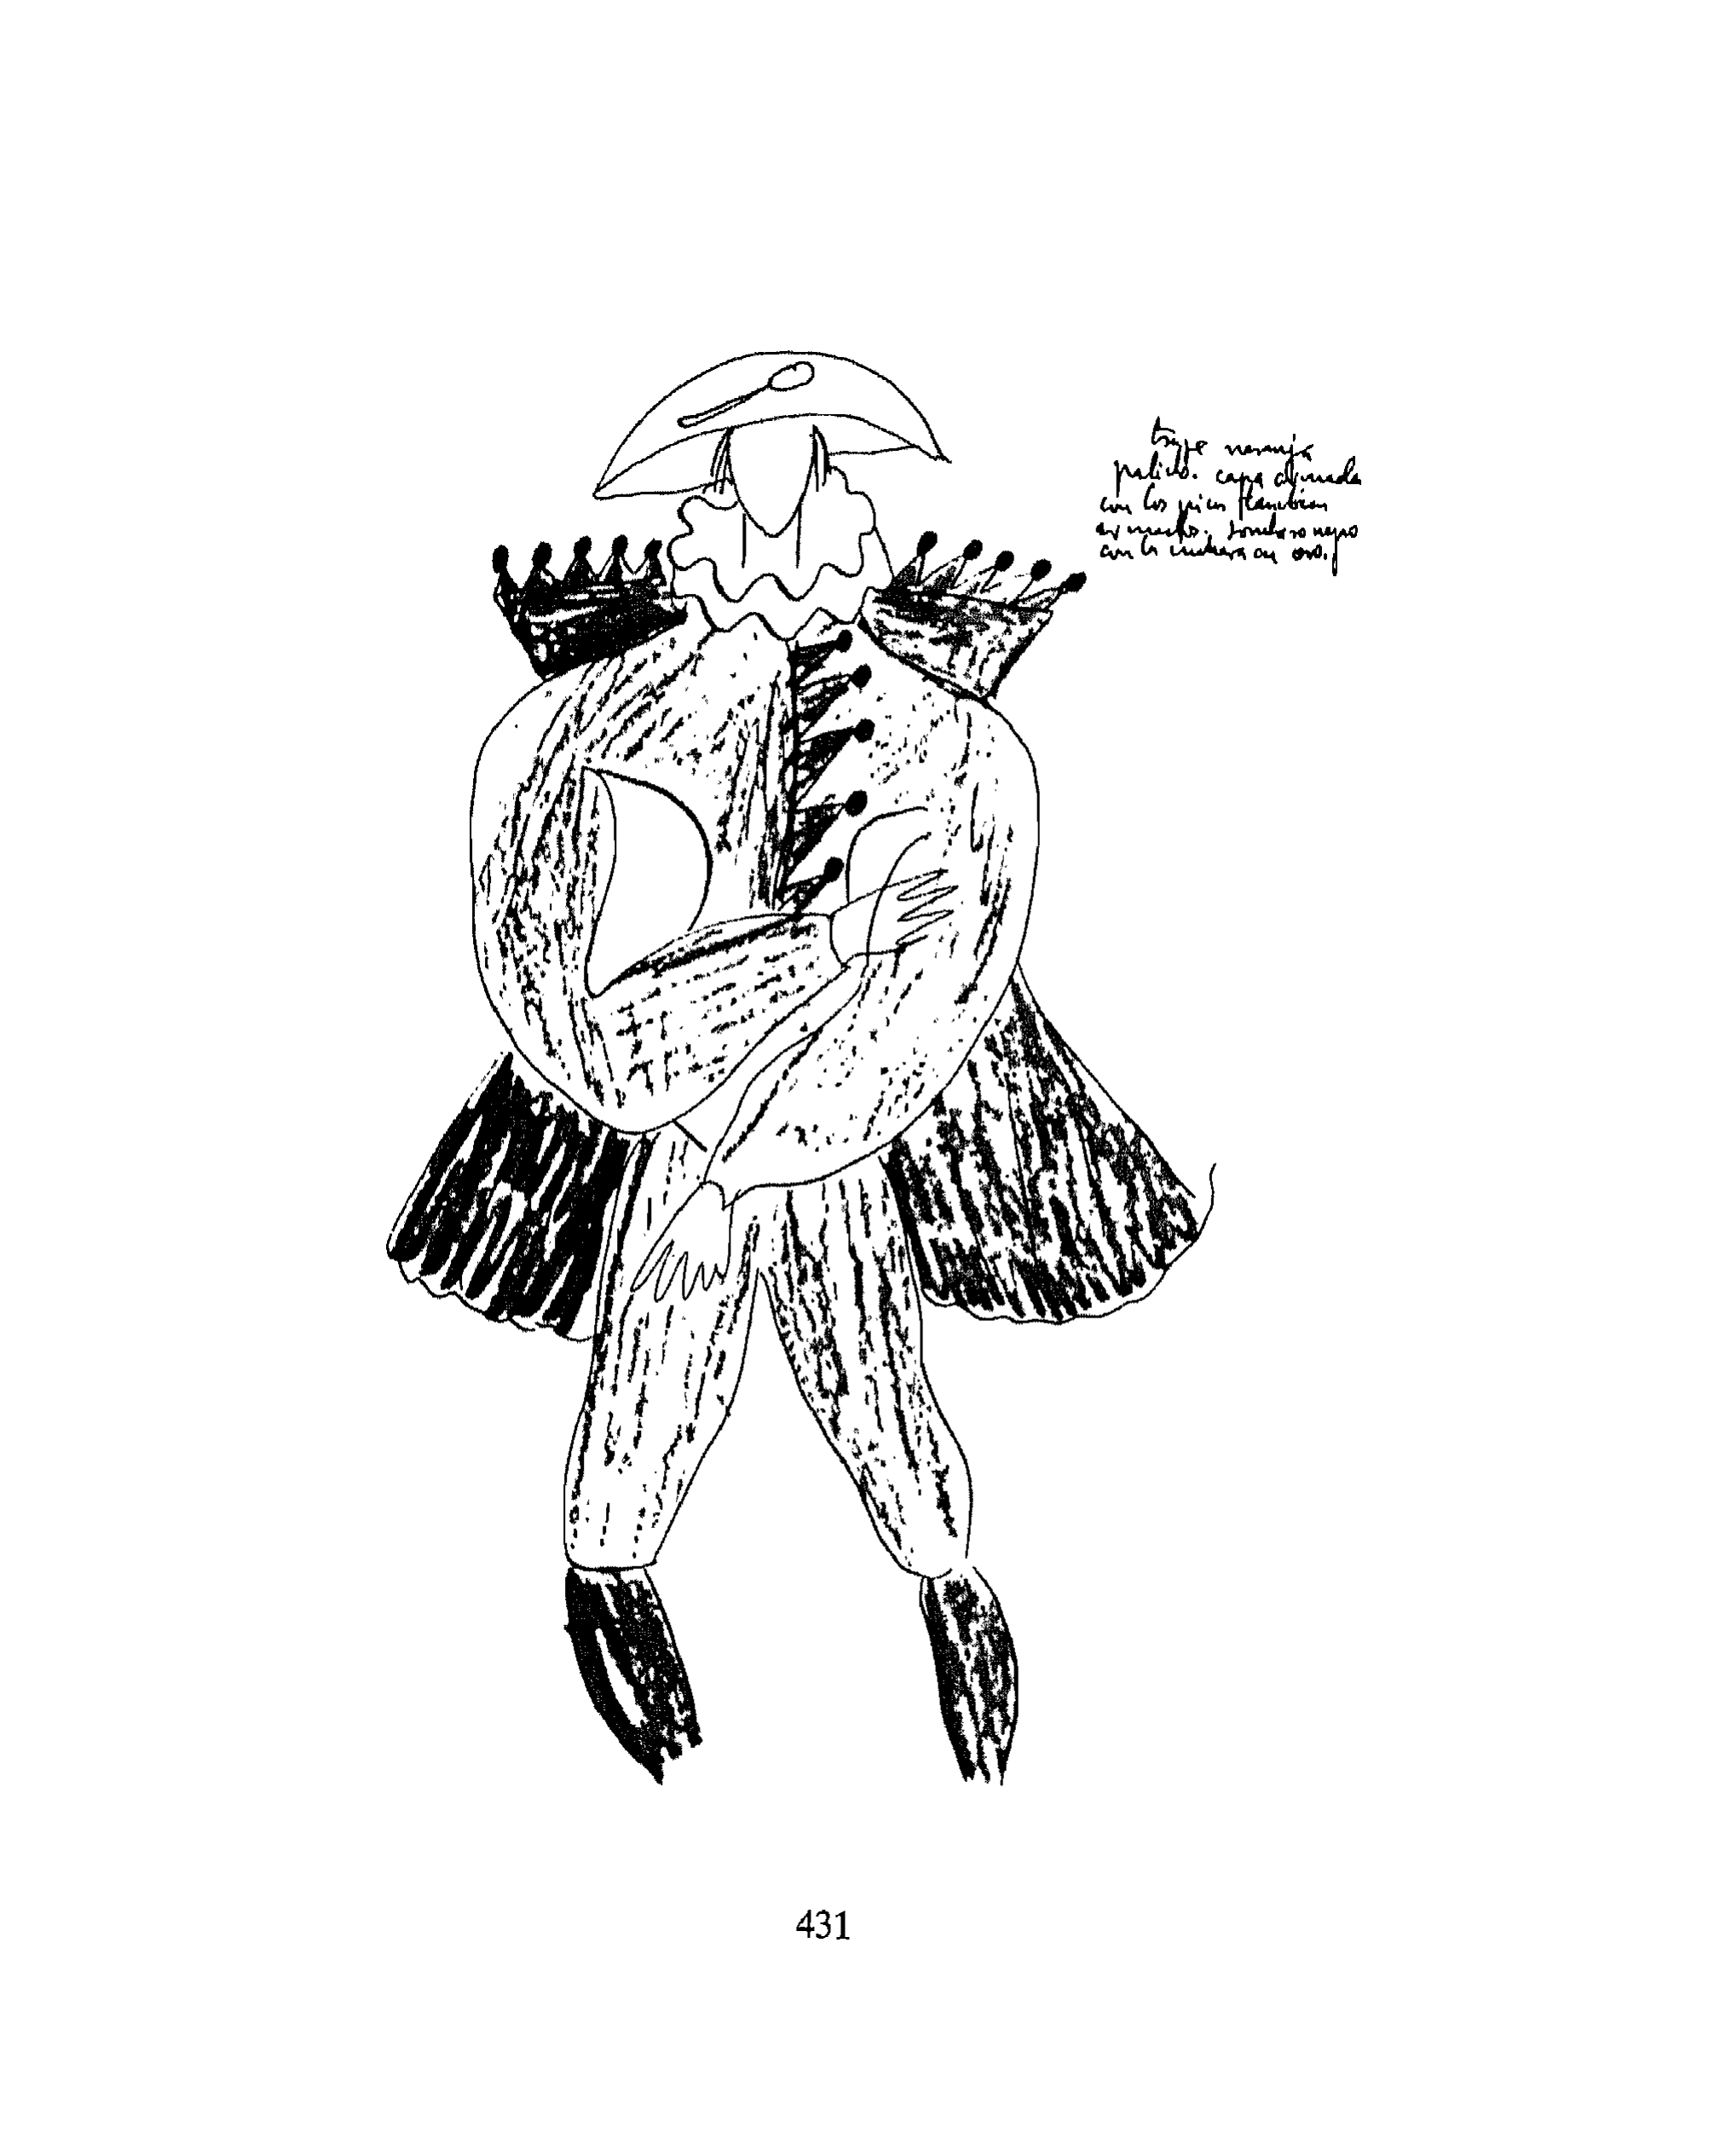 traje naranja
palido. capa armada
con los picos tambien
armados. sombrero negro
con la cuchara en oro.
431